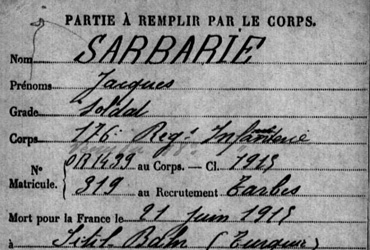 PARTIE À REMPLIR PAR LE CORPS.
Nom SARBARIE
Prénoms Jacques
Grade Soldat
Corps 176e Regt Infanterie
No Matricule. OR1499 au Corps. — Cl. 1915
319 au Recrutement Tarbes
Mort pour la France le 21 juin 1915
à Sitil Bahr (Turquie)